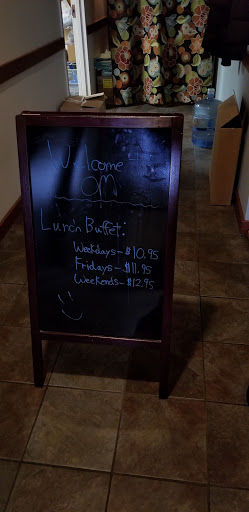 Welcome
OM
Lunch Buffet:
Weekdays - $10.95
Fridays - $11.95
Weekends - $12.95